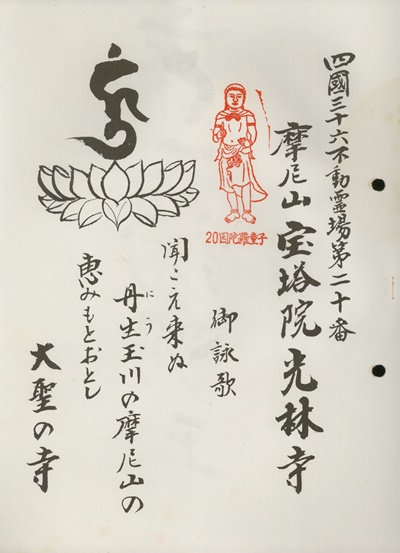 四國三十六不動霊場第二十番
摩尼山 宝塔院 光林寺
20因陀羅童子
御詠歌
聞こえ来ぬ
丹生玉川の摩尼山の
にう
恵みもとおとし
大聖の寺